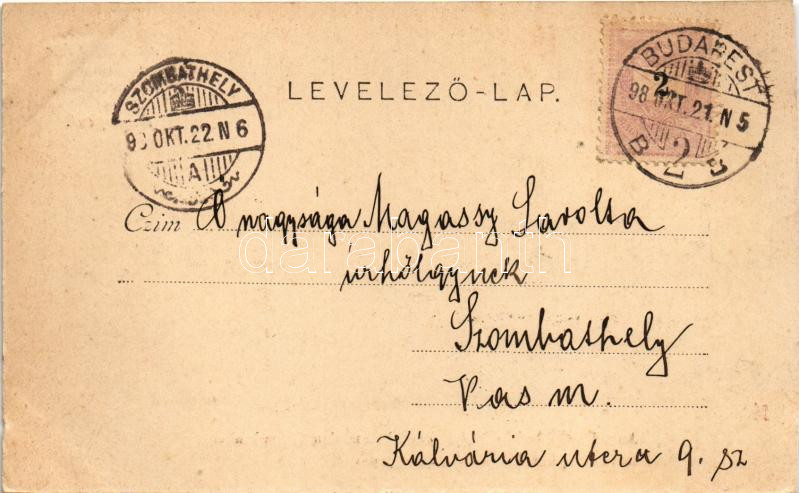 LEVELEZŐ-LAP.
BUDAPEST
98 OKT. 21. N 5
2
SZOMBATHELY
98 OKT. 22 N 6
A
Czim Ő nagysága Magassy Sarolta
úrhölgynek
darabanth
Szombathely
Vas m.
Kálvária utcza 9. sz